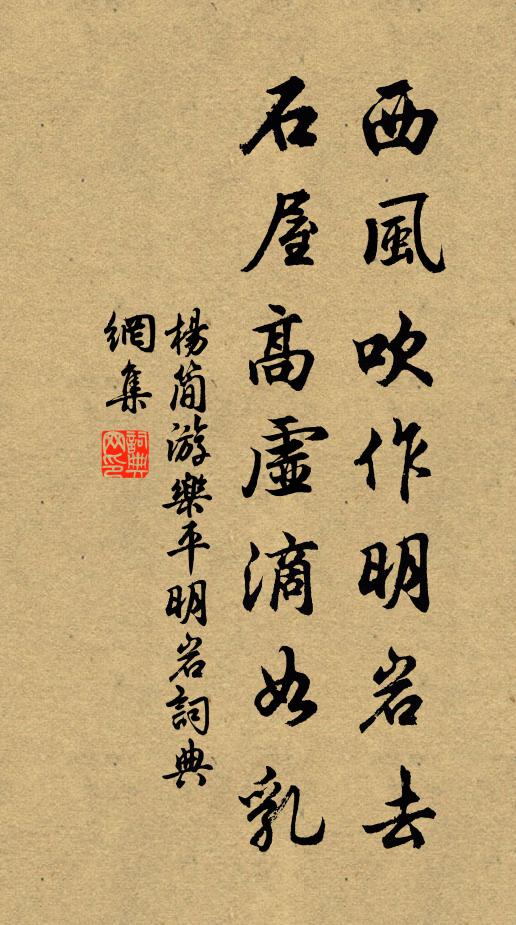 西風吹作明岩去
石屋高虛滴如乳
楊簡游樂平明岩詞典
網集
詞典網印